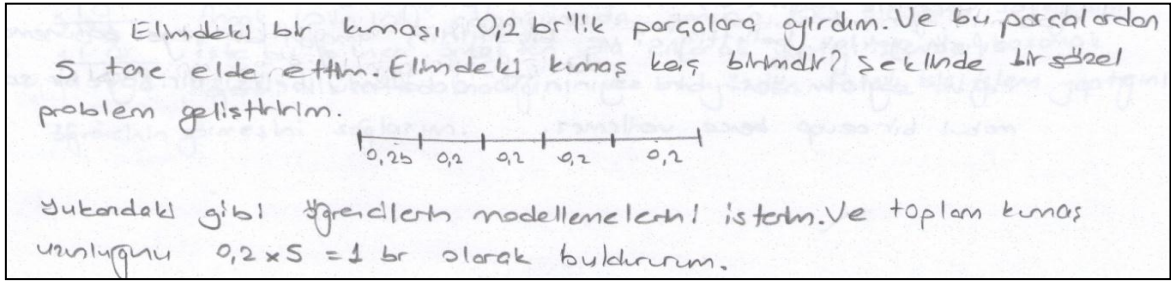 Elimdeki bir kumaşı 0,2 br'lik parçalara ayırdım. Ve bu parçalardan
5 tane elde ettim. Elimdeki kumaş kaç birimdir? şeklinde bir sözel
problem geliştiririm.
0,2b 0,2 0,2 0,2 0,2
Yukarıdaki gibi öğrencilerin modellemelerini isterim. Ve toplam kumaş
uzunluğunu 0,2 x 5 = 1 br olarak buldururum.